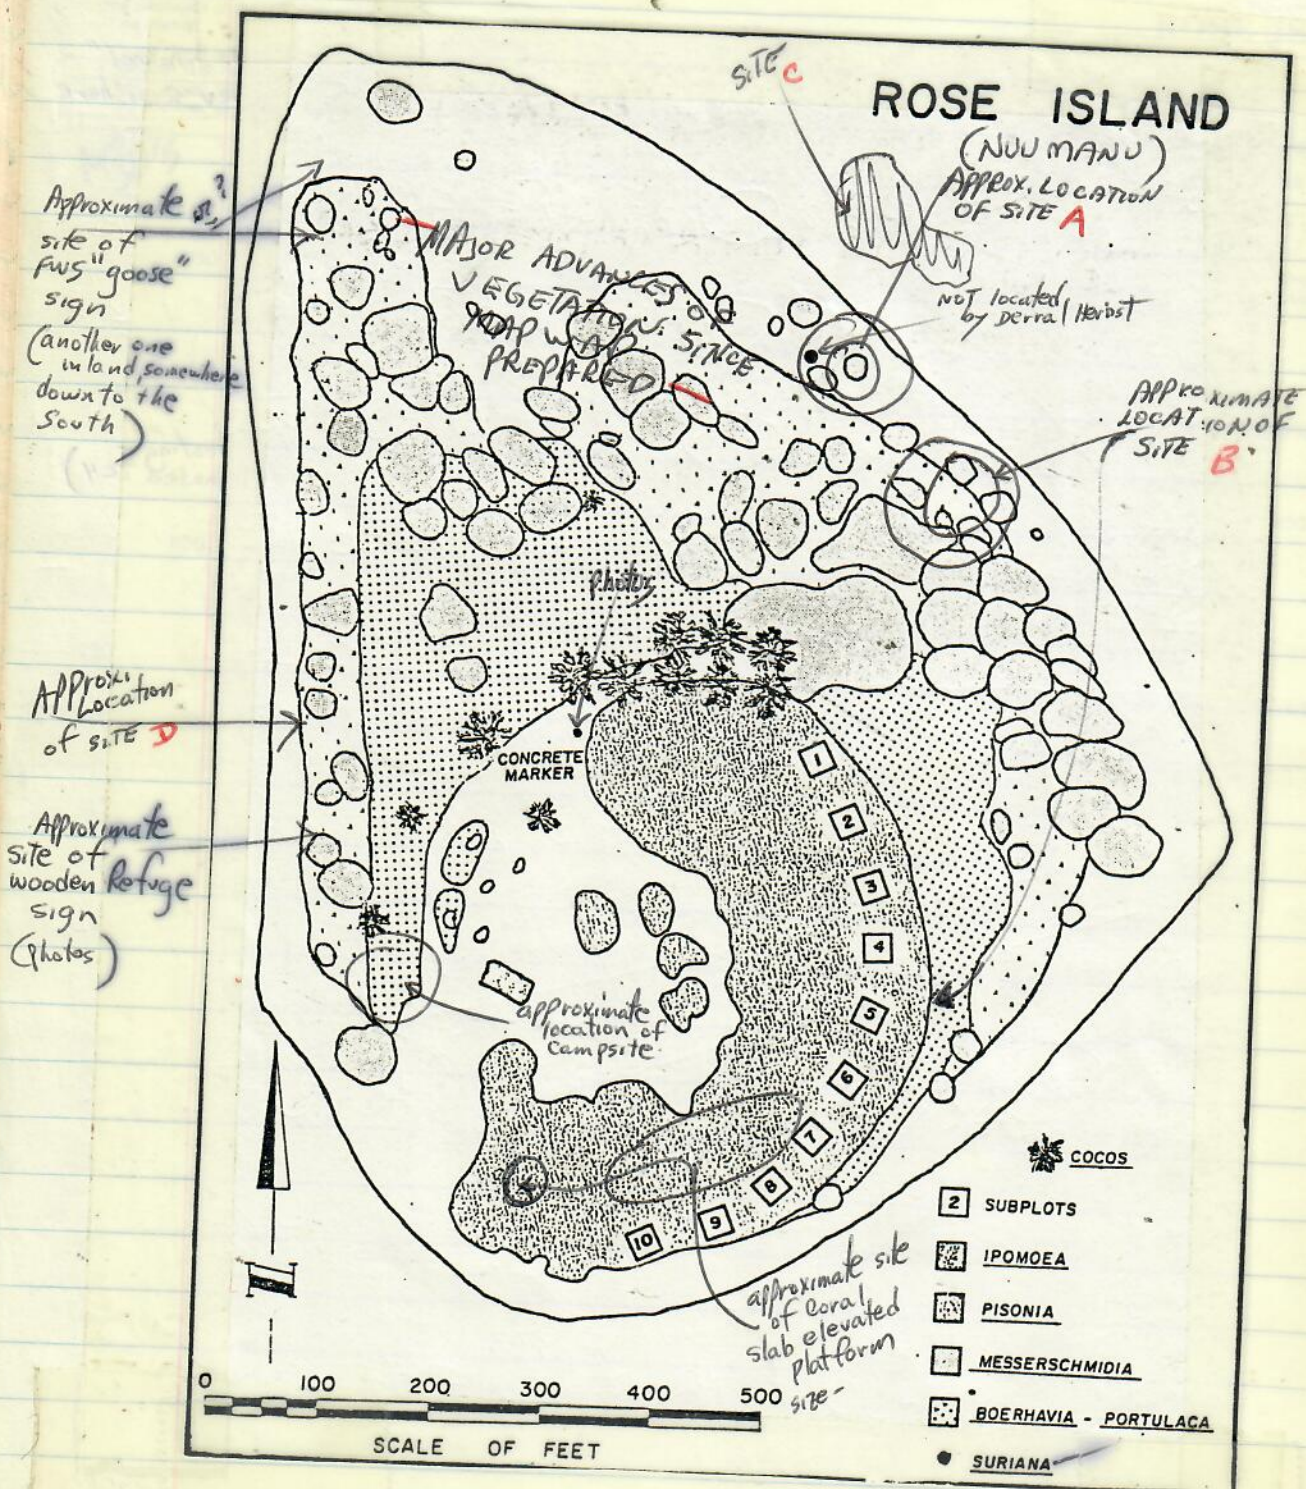 ROSE ISLAND
(NUU MANU)
SITE C
APPROX. LOCATION
OF SITE A
NOT located
by Derral Herbst
APPROXIMATE
LOCATION OF
SITE B.
Approximate
site of
FWS "goose"
sign
(another one
inland, somewhere
down to the
South)
MAJOR ADVANCES OF
VEGETATION SINCE
MAP WAS
PREPARED
Photos
APProxi.
Location
of SITE D
CONCRETE
MARKER
Approximate
site of
wooden Refuge
sign
(Photos)
approximate
location of
campsite.
1
2
3
4
5
6
7
8
9
10
approximate site
of Coral
slab elevated
platform
size -
COCOS
2 SUBPLOTS
IPOMOEA
PISONIA
MESSERSCHMIDIA
BOERHAVIA - PORTULACA
SURIANA
N
0 100 200 300 400 500
SCALE OF FEET